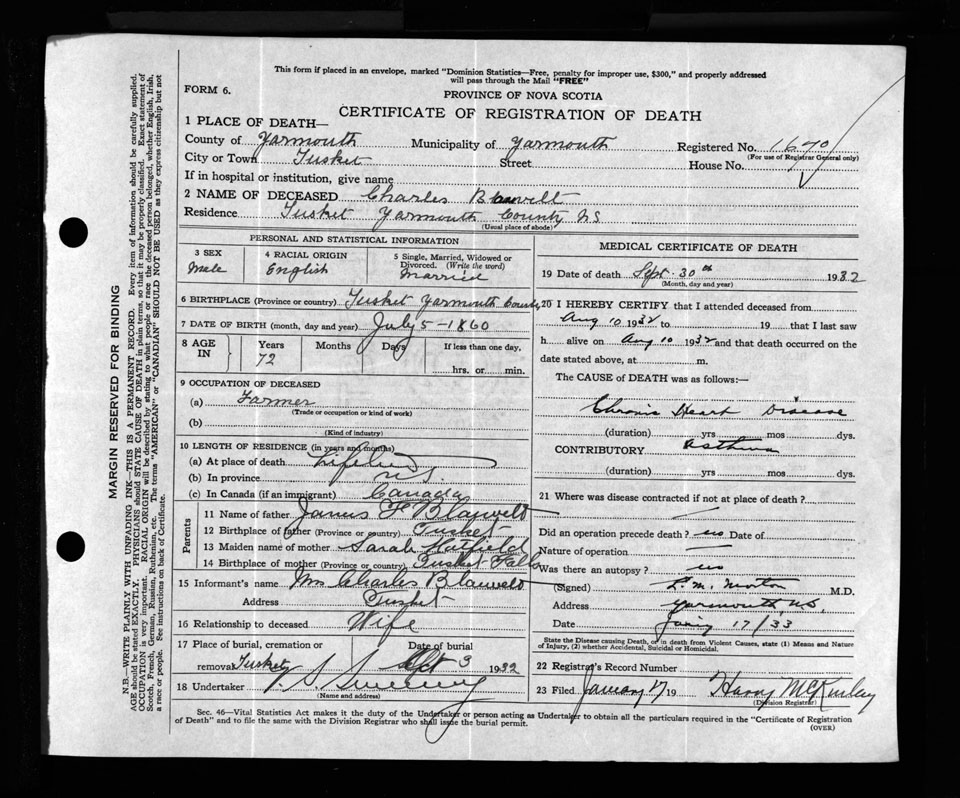 This form if placed in an envelope, marked "Dominion Statistics—Free, penalty for improper use, $300," and properly addressed
will pass through the Mail "FREE"
FORM 6.
PROVINCE OF NOVA SCOTIA
CERTIFICATE OF REGISTRATION OF DEATH
1 PLACE OF DEATH—
County of Yarmouth Municipality of Yarmouth Registered No. 1670
(For use of Registrar General only)
City or Town Tusket Street House No.
If in hospital or institution, give name
2 NAME OF DECEASED Charles Blauvelt
Residence Tusket Yarmouth County NS
(Usual place of abode)
PERSONAL AND STATISTICAL INFORMATION
3 SEX 4 RACIAL ORIGIN 5 Single, Married, Widowed or
Divorced. (Write the word)
Male English Married
6 BIRTHPLACE (Province or country) Tusket Yarmouth County
7 DATE OF BIRTH (month, day and year) July 5-1860
8 AGE IN Years Months Days If less than one day,
72 hrs. or min.
9 OCCUPATION OF DECEASED
(a) Farmer
(Trade or occupation or kind of work)
(b)
(Kind of industry)
10 LENGTH OF RESIDENCE (in years and months)
(a) At place of death
(b) In province
(c) In Canada (if an immigrant) Canada
Parents
11 Name of father James F Blauvelt
12 Birthplace of father (Province or country) Tusket
13 Maiden name of mother Sarah Hatfield
14 Birthplace of mother (Province or country) Tusket Falls
15 Informant's name Mrs Charles Blauvelt
Address Tusket
16 Relationship to deceased Wife
17 Place of burial, cremation or Date of burial
removal Tusket Oct 3 1932
18 Undertaker Sweeney
(Name and address)
MEDICAL CERTIFICATE OF DEATH
19 Date of death Sept. 30th 1932
(Month, day and year)
20 I HEREBY CERTIFY that I attended deceased from
Aug 10 1932 to 19 that I last saw
h alive on Aug 10 1932 and that death occurred on the
date stated above, at m.
The CAUSE of DEATH was as follows:—
Chronic Heart Disease
(duration) yrs mos dys.
CONTRIBUTORY Asthma
(duration) yrs mos dys.
21 Where was disease contracted if not at place of death?
Did an operation precede death? no Date of
Nature of operation
Was there an autopsy? no
(Signed) L. M. Morton M.D.
Address Yarmouth, N.S.
Date Jany 17/33
State the Disease causing Death, or in death from Violent Causes, state (1) Means and Nature
of Injury, (2) whether Accidental, Suicidal or Homicidal.
22 Registrar's Record Number
23 Filed January 17 19 Harry McKinley
(Division Registrar)
Sec. 46—Vital Statistics Act makes it the duty of the Undertaker or person acting as Undertaker to obtain all the particulars required in the "Certificate of Registration
of Death" and to file the same with the Division Registrar who shall issue the burial permit.
(OVER)
MARGIN RESERVED FOR BINDING
N.B.—WRITE PLAINLY WITH UNFADING INK—THIS IS A PERMANENT RECORD. Every item of information should be carefully supplied.
AGE should be stated EXACTLY. PHYSICIANS should STATE CAUSE OF DEATH in plain terms, so that it may be properly classified. Exact statement of
OCCUPATION is very important. RACIAL ORIGIN will be described by stating to what people or race the deceased person belonged, whether English, Irish,
Scotch, French, German, Russian, Ruthenian, etc. The terms "AMERICAN" or "CANADIAN" SHOULD NOT BE USED as they express citizenship but not
a race or people. See instructions on back of Certificate.